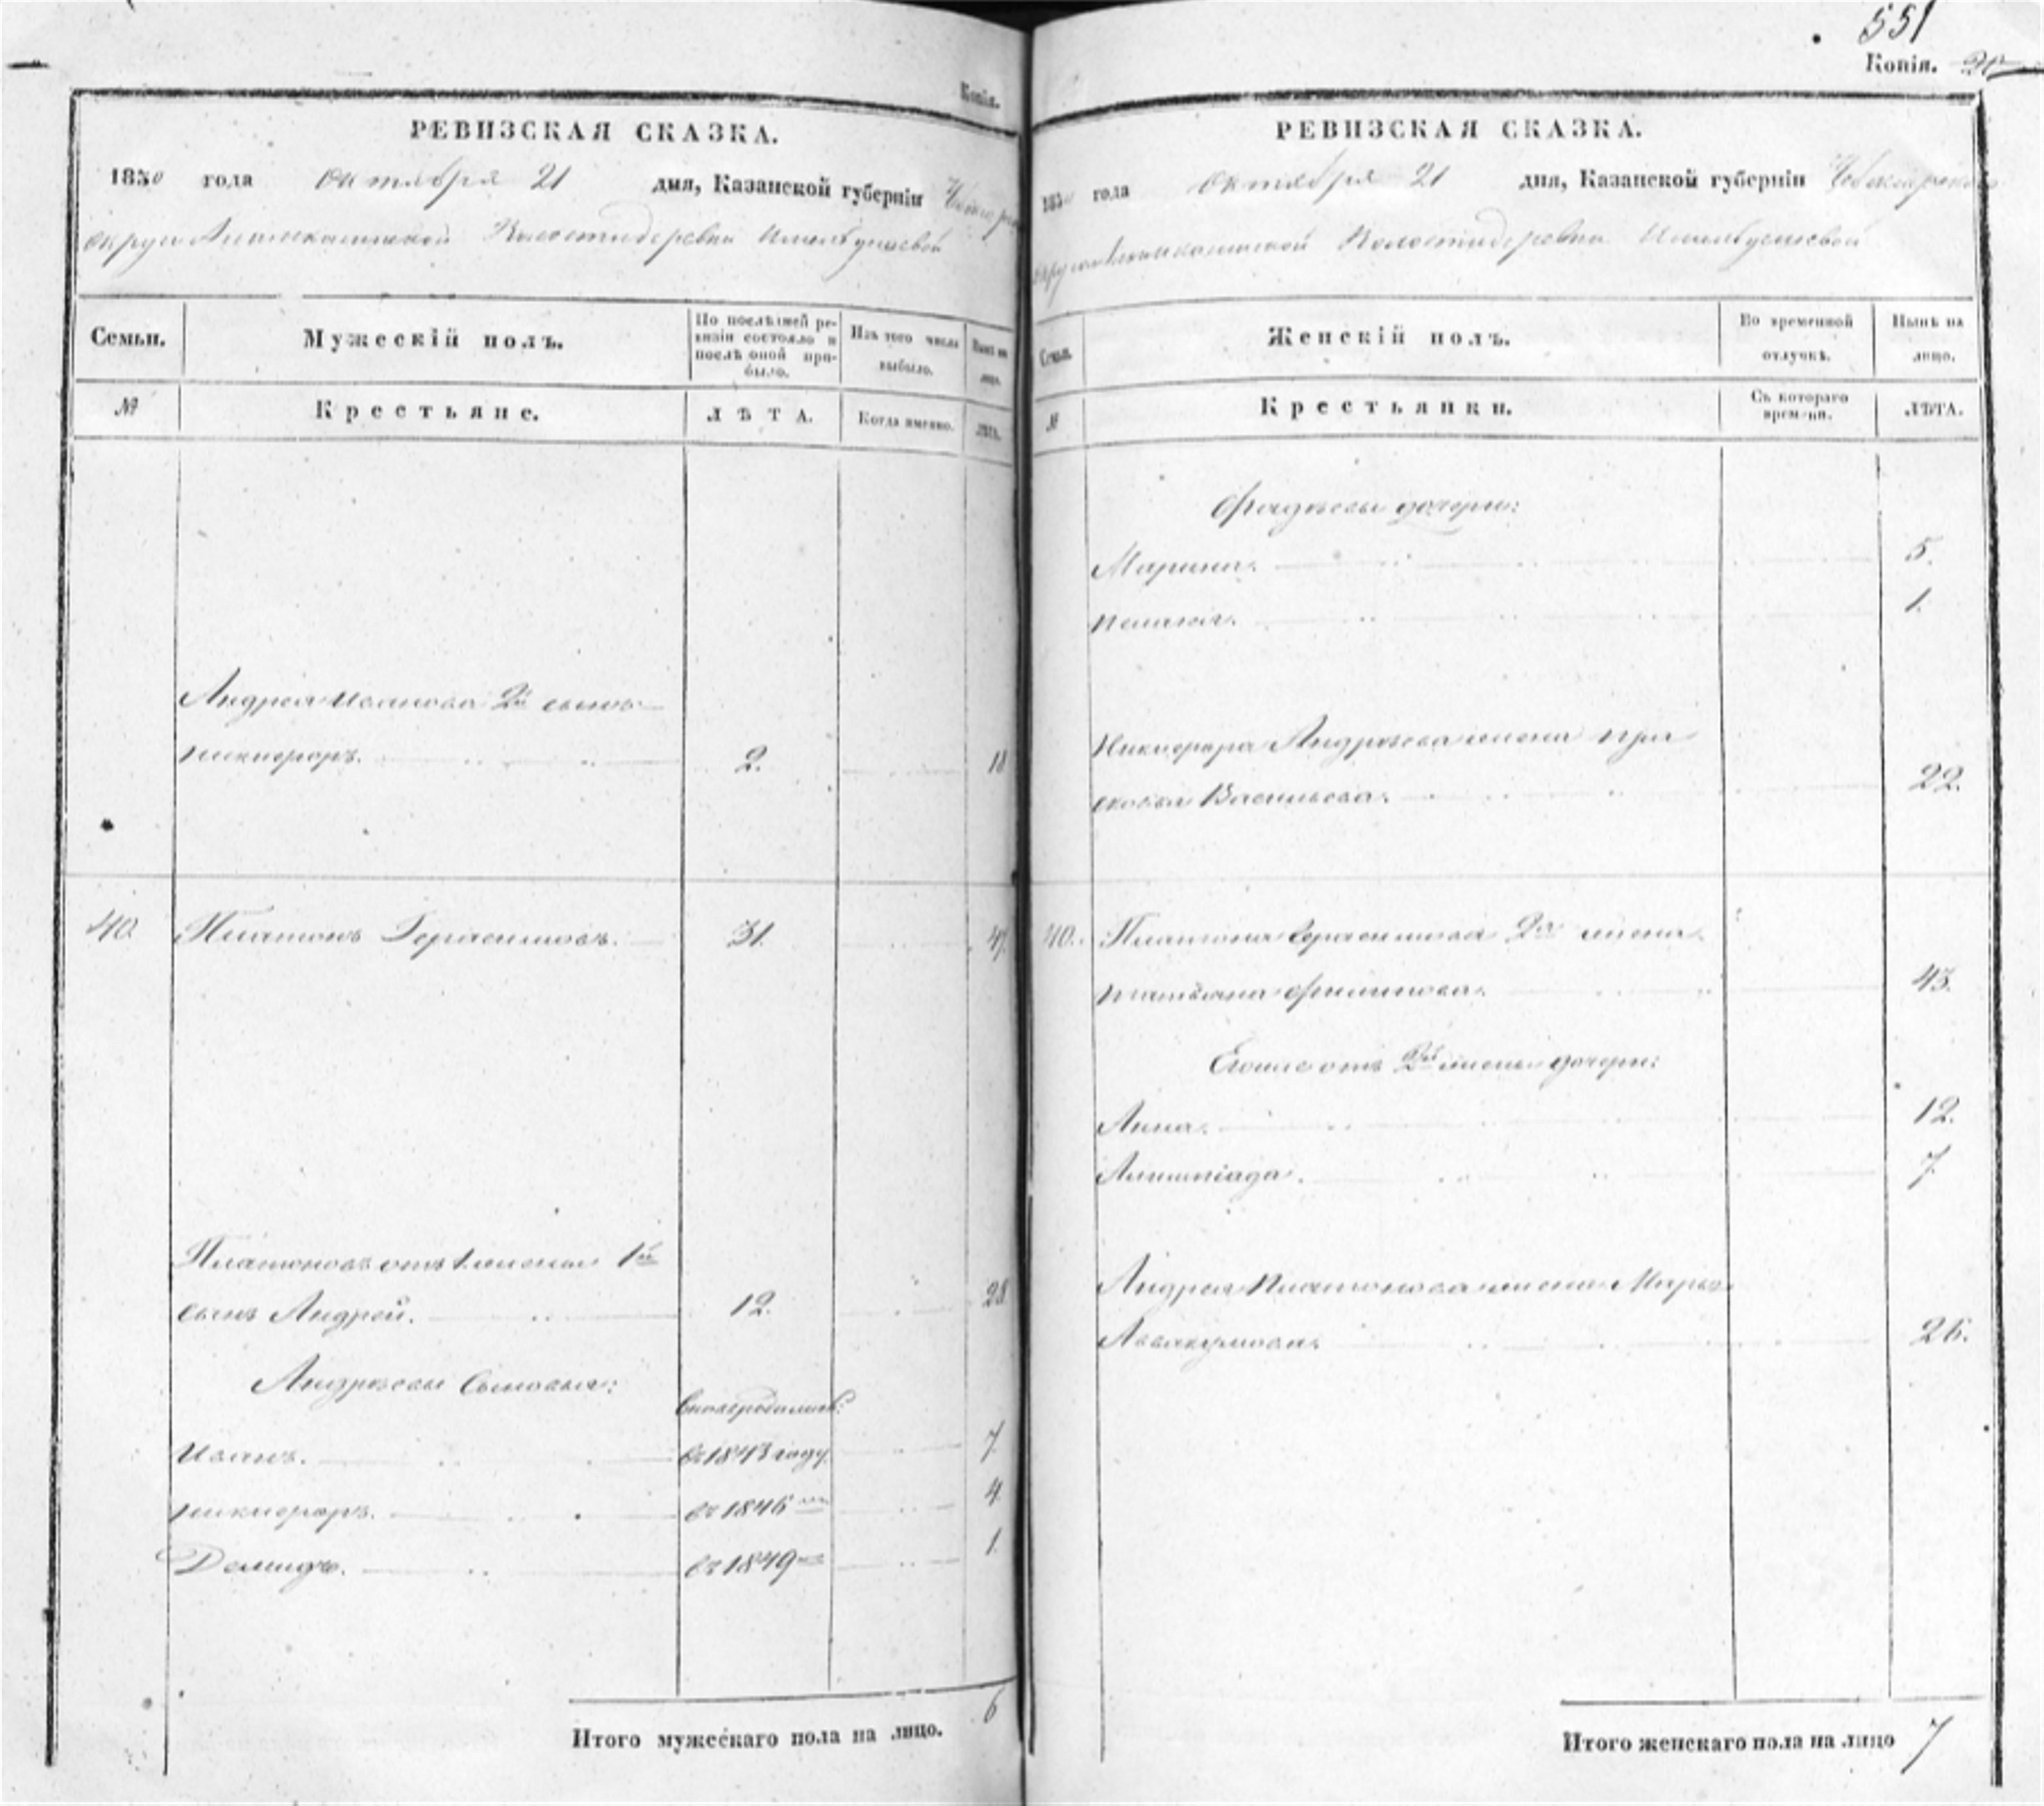 Копія.
РЕВИЗСКАЯ СКАЗКА.
1850 года Октября 21 дня, Казанской губерніи
округа
Семьи.
Мужескій полъ.
По послѣдней ре-
визіи состояло и
послѣ оной при-
было.
Изъ того числа
выбыло.
Нынѣ на
лицо.
№
Крестьяне.
ЛѢТА.
Когда именно.
ЛѢТА.
Андрея Иванова 2й сынъ
Никифоръ. 2. 18
40. Платонъ Герасимовъ. 31. 47.
Платоновъ отъ 1 жены 1й
сынъ Андрей. 12. 28
Андреевы сыновья:
Иванъ. въ 1843 году. 7.
Никифоръ. въ 1846 4.
Демидъ. въ 1849 1.
Итого мужескаго пола на лицо. 6
551
Копія.
РЕВИЗСКАЯ СКАЗКА.
1850 года Октября 21 дня, Казанской губерніи Чебоксарскаго
Семьи.
Женскій полъ.
Во временной
отлучкѣ.
Нынѣ на
лицо.
№
Крестьянки.
Съ котораго
времени.
ЛѢТА.
дочери:
Марина. 5.
Пелагея. 1.
Никифора Андреева жена Пра
сковья Васильева. 22.
40. Платона Герасимова 2я жена
Татьяна Филипова. 43.
Егоже отъ 2й жены дочери:
Анна. 12.
Алимпіада. 7.
Андрея Платонова жена Марья
Аввакумова. 26.
Итого женскаго пола на лицо 7